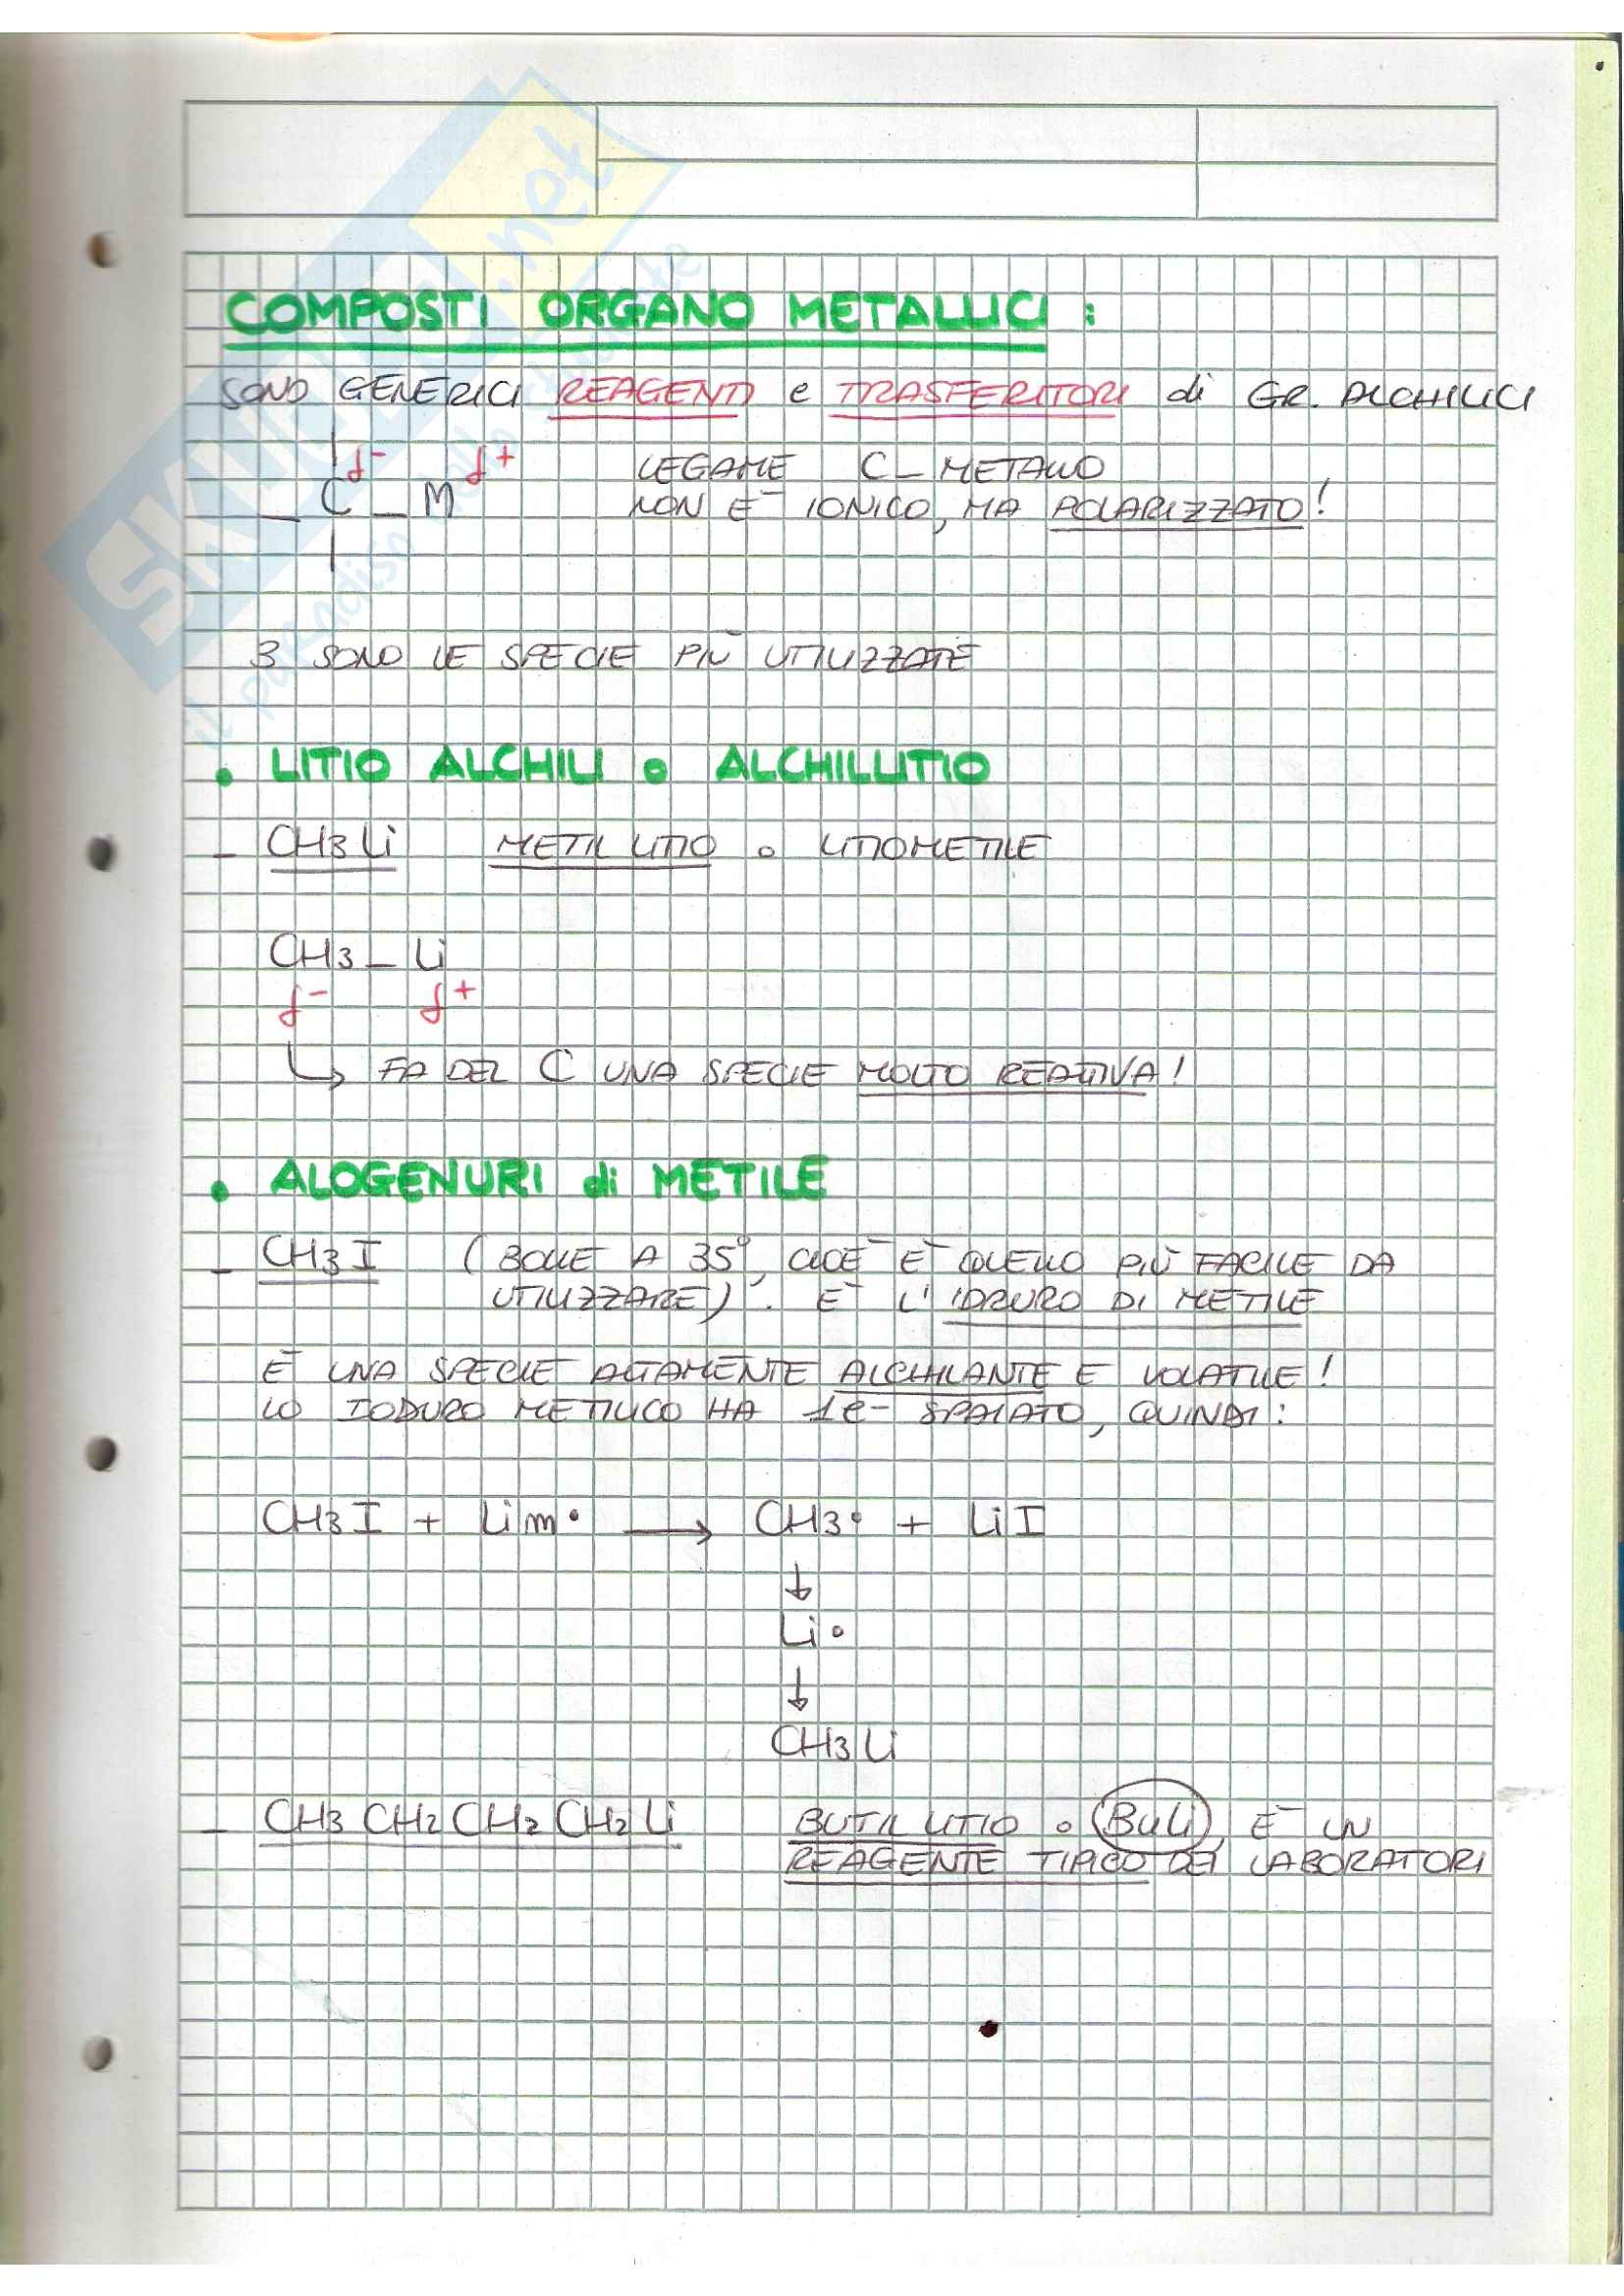 COMPOSTI ORGANO METALLICI :
SONO GENERICI REAGENTI e TRASFERITORI di GR. ALCHILICI
δ- δ+
C - M
LEGAME C - METALLO
NON È IONICO, MA POLARIZZATO!
3 SONO LE SPECIE PIÙ UTILIZZATE
• LITIO ALCHILI o ALCHILLITIO
- CH3Li METIL LITIO o LITIOMETILE
CH3 - Li
δ- δ+
↳ FA DEL C UNA SPECIE MOLTO REATTIVA!
• ALOGENURI di METILE
- CH3I (BOLLE A 35°, CIOÈ È QUELLO PIÙ FACILE DA
UTILIZZARE). È L'IDRURO DI METILE
È UNA SPECIE ALTAMENTE ALCHILANTE E VOLATILE!
LO IODURO METILICO HA 1e- SPAIATO, QUINDI:
CH3I + Lim• → CH3• + LiI
↓
Li•
↓
CH3Li
- CH3CH2CH2CH2Li BUTIL LITIO o BuLi, È UN
REAGENTE TIPICO DEI LABORATORI
SKUOLA.net
il paradiso dello studente